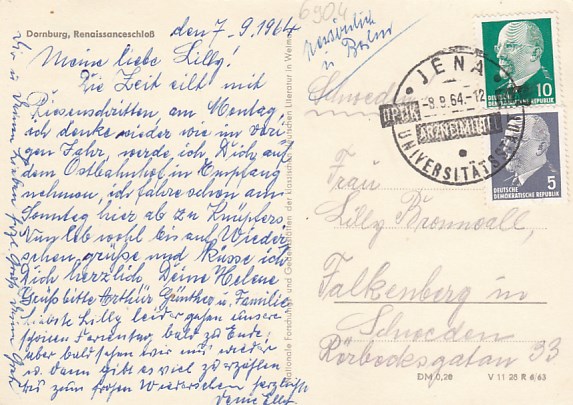 6904
Dornburg, Renaissanceschloß
den 7.-9.1964
Meine liebe Lilly!
Die Zeit eilt mit
Riesenschritten, am Montag,
ich denke wieder wie im vori-
gen Jahr, werde ich Dich auf
dem Ostbahnhof in Empfang
nehmen, ich fahre schon am
Sonntag hier ab zu Knüpfers
Nun leb wohl bis auf Wieder
sehen grüße und küsse ich
Dich herzlich Deine Helene
Gruß bitte Arthur Günther u. Familie
Liebste Lilly, leider gehen unsere
schönen Ferientage bald zu Ende,
aber bald sehen wir uns wieder
u. dann gibt es viel zu erzählen
bis zum frohen Wiedersehen herzlichst
Deine Elly
Nationale Forschungs- und Gedenkstätten der klassischen deutschen Literatur in Weimar
persönlich
in Berlin
JENA
-8.9.64.-12
ARZNEIMITTEL
UNIVERSITÄTS
10
DEUTSCHE DEMOKRATISCHE REPUBLIK
5
DEUTSCHE
DEMOKRATISCHE REPUBLIK
Schweden
Frau
Lilly
Falkenberg in
Schweden
Rörbecksgatan 33
DM 0,20 V 11 28 R 6/63